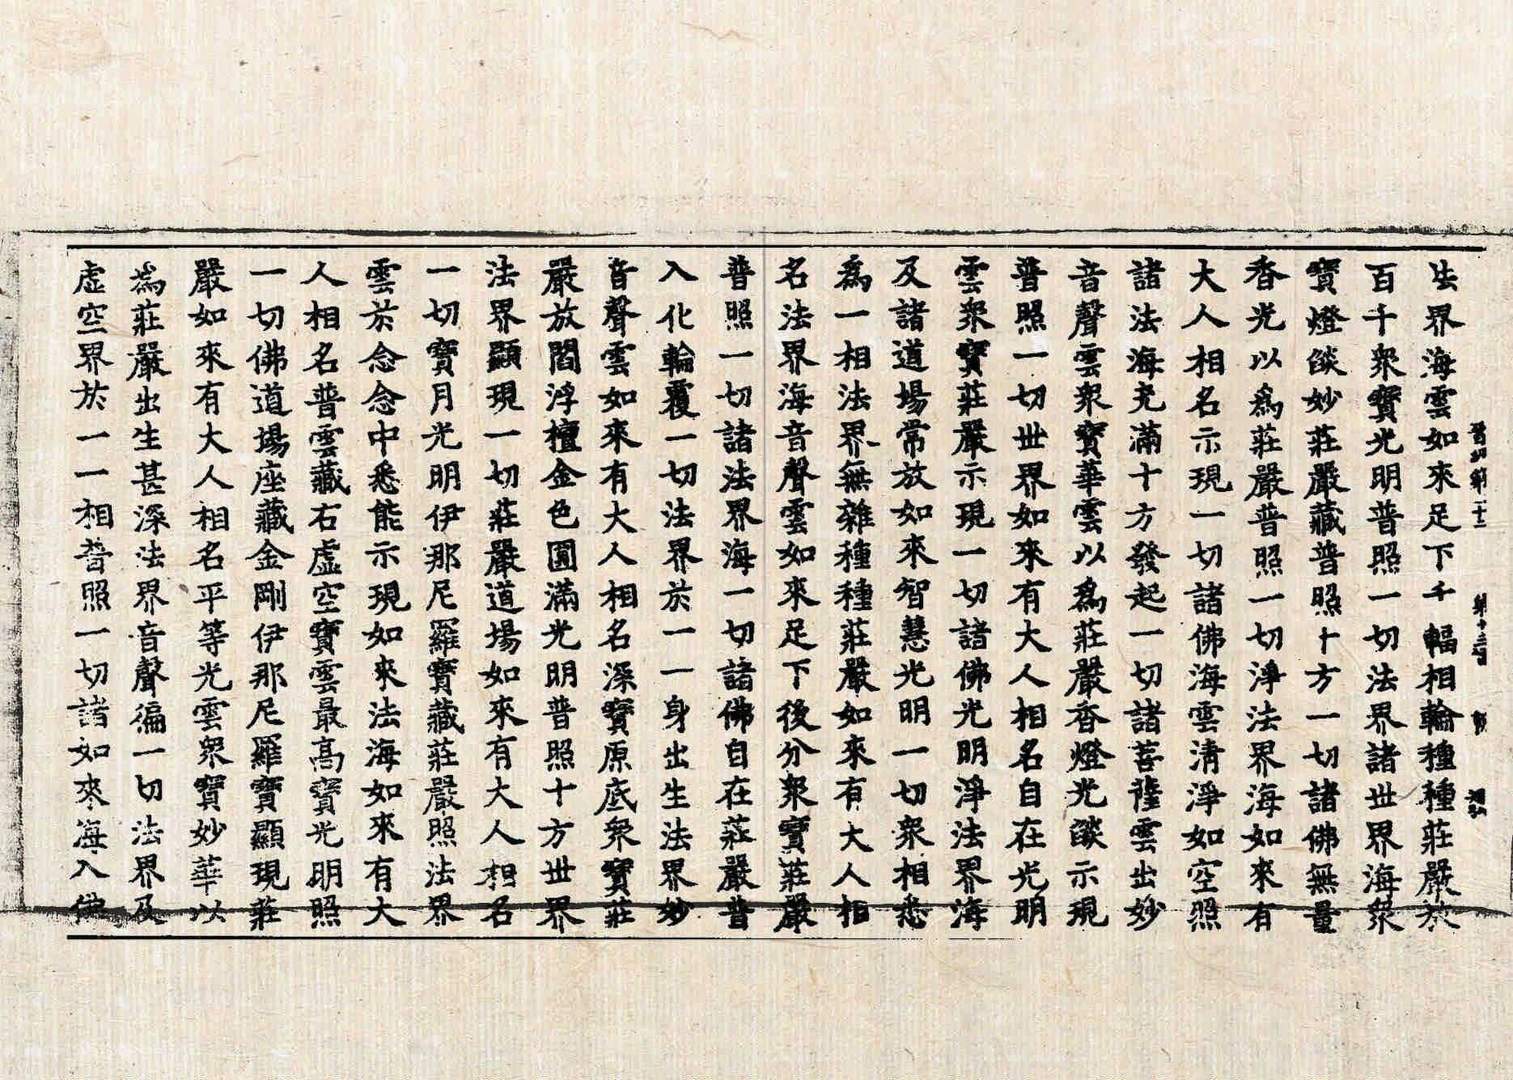 法界海雲如來足下千輻相輪種種莊嚴於
百千衆寶光明普照一切法界諸世界海衆
寶燈燄妙莊嚴藏普照十方一切諸佛無量
香光以爲莊嚴普照一切淨法界海如來有
大人相名示現一切諸佛海雲清淨如空照
諸法海充滿十方發起一切諸菩薩雲出妙
音聲雲衆寶華雲以爲莊嚴香燈光燄示現
普照一切世界如來有大人相名自在光明
雲衆寶莊嚴示現一切諸佛光明淨法界海
及諸道場常放如來智慧光明一切衆相悉
爲一相法界無雜種種莊嚴如來有大人相
名法界海音聲雲如來足下後分衆寶莊嚴
普照一切諸法界海一切諸佛自在莊嚴普
入化輪覆一切法界於一一身出生法界妙
音聲雲如來有大人相名深寶原底衆寶莊
嚴放閻浮檀金色圓滿光明普照十方世界
法界顯現一切莊嚴道場如來有大人相名
一切寶月光明伊那尼羅寶藏莊嚴照法界
雲於念念中悉能示現如來法海如來有大
人相名普雲藏右虛空寶雲最高寶光明照
一切佛道場座藏金剛伊那尼羅寶顯現莊
嚴如來有大人相名平等光雲衆寶妙華以
爲莊嚴出生甚深法界音聲徧一切法界及
虛空界於一一相普照一切諸如來海入佛